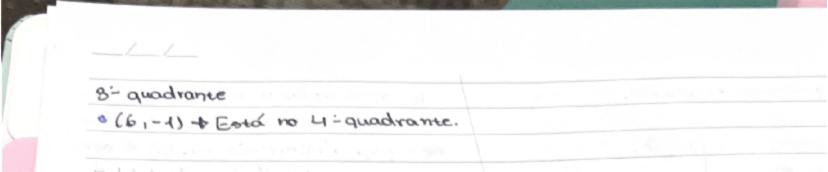 __/__/__
3º quadrante
• (6,-1) → Está no 4º quadrante.